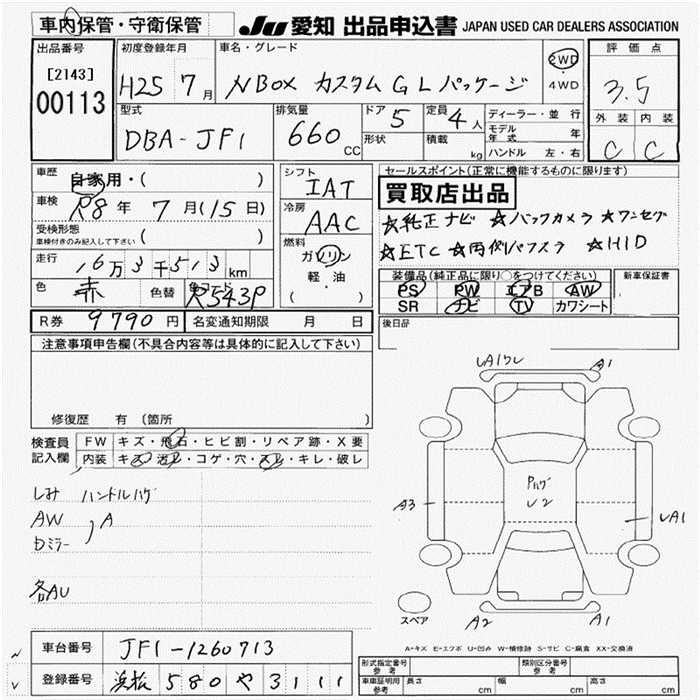 車内保管・守衛保管
JU 愛知 出品申込書 JAPAN USED CAR DEALERS ASSOCIATION
出品番号
[2143]
00113
初度登録年月
H25 7月
車名・グレード
NBOX カスタム G Lパッケージ
2WD
・
4WD
評価点
3.5
外装 内装
C C
型式
DBA-JF1
排気量
660 CC
ドア 5
形状
定員 4人
積載 kg
ディーラー・並行
モデル年式 年
ハンドル 左・右
車歴
自家用・( )
車検
R8年 7月(15日)
受検形態
車検付きのみ記入して下さい ( )
走行
16万3千513km
色 赤 色替 色コード R543P
シフト
IAT
冷房
AAC
燃料
ガソリン
軽・油
( )
セールスポイント(正常に機能するものに限ります)
買取店出品
☆純正ナビ ☆バックカメラ ☆ワンセグ
☆ETC ☆両側パワスラ ☆HID
装備品(純正品に限り○をつけてください)
PS PW エアB AW
SR ナビ TV カワシート
新車保証書
後日品
R券 9790円 名変通知期限 月 日
注意事項申告欄(不具合内容等は具体的に記入して下さい)
修復歴 有 (箇所
検査員
記入欄
FW キズ・飛石・ヒビ割・リペア跡・X要
内装 キズ・汚レ・コゲ・穴・スレ・キレ・破レ
しみ ハンドルハゲ
AW , A
Dミラー
各AU
UA1ワレ A1
A3
Pハゲ
U2
UA1
A2 A1
スペア
A-キズ E-エクボ U-凹み W-補修跡 S-サビ C-腐食 XX-交換済
車台番号 JF1-1260713
登録番号 浜松 580 や 3111
形式指定番号
参考
類別区分番号
参考
車庫証明用
参考
長さ cm 幅 cm 高さ cm